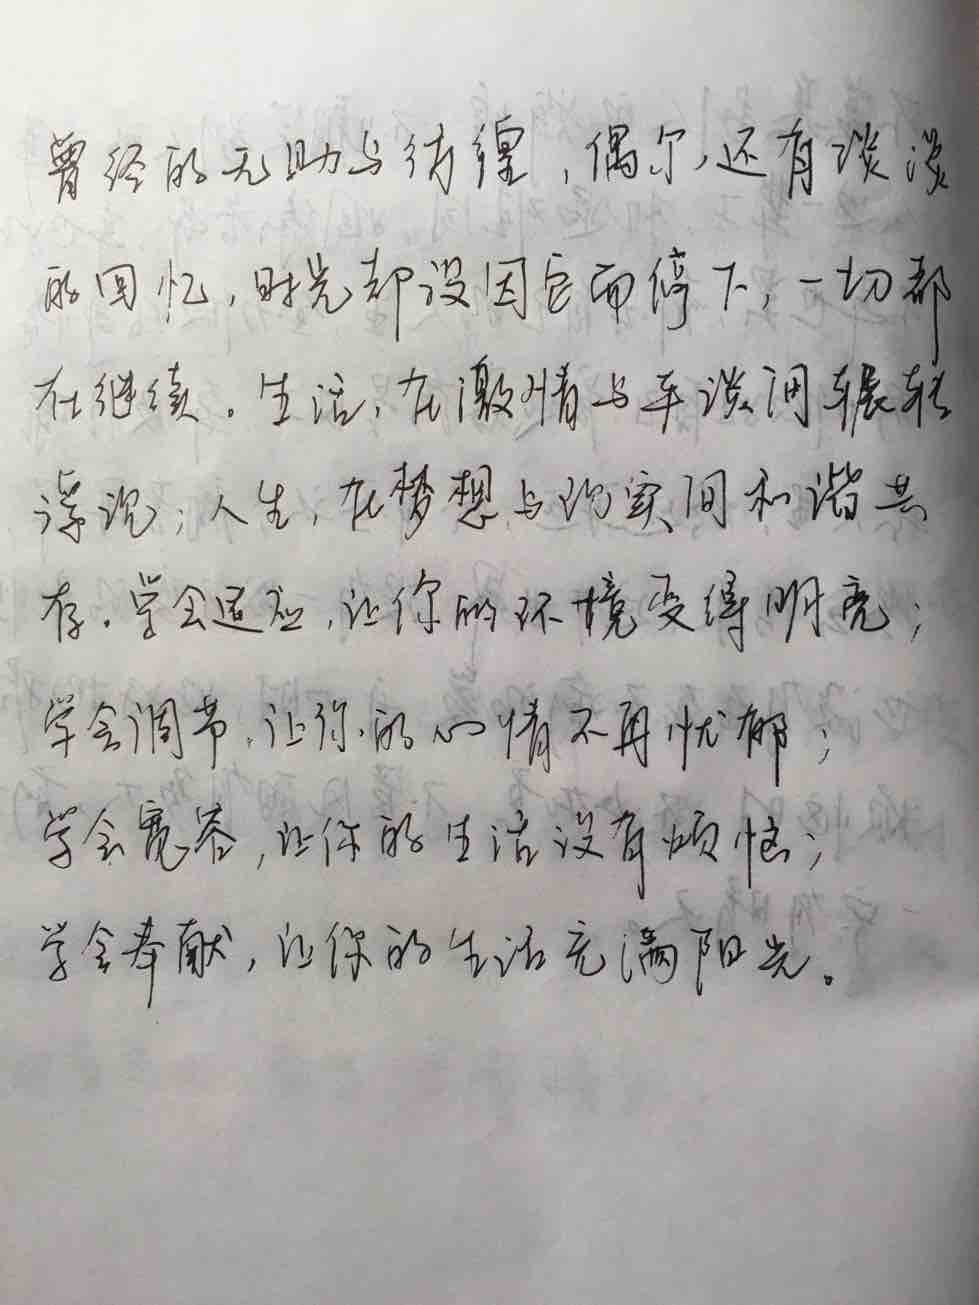 曾经的无助与彷徨,偶尔,还有淡淡
的回忆,时光却没因它而停下,一切都
在继续。生活,在激情与平淡间辗转
演说;人生,在梦想与现实间和谐共
存。学会适应,让你的环境变得明亮;
学会调节,让你的心情不再忧郁;
学会宽容,让你的生活没有烦恼;
学会奉献,让你的生活充满阳光。